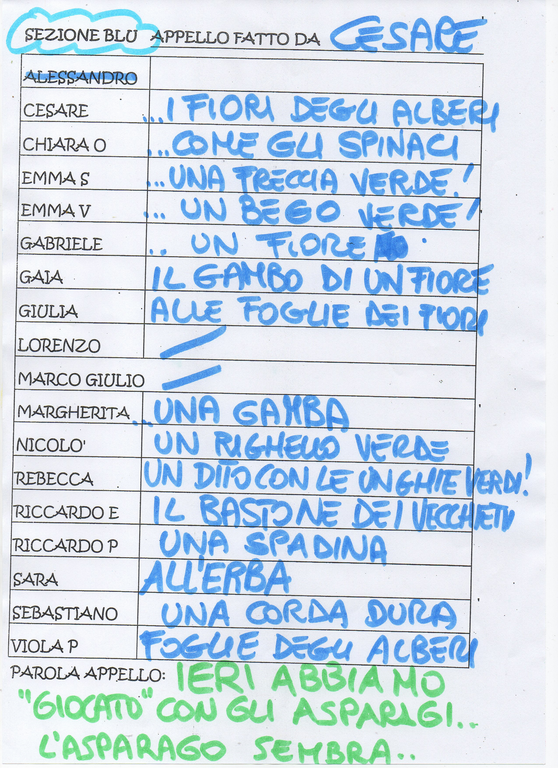 SEZIONE BLU APPELLO FATTO DA CESARE
ALESSANDRO
CESARE ...I FIORI DEGLI ALBERI
CHIARA O ...COME GLI SPINACI
EMMA S ...UNA FRECCIA VERDE!
EMMA V ... UN BEGO VERDE!
GABRIELE .. UN FIORE
GAIA IL GAMBO DI UN FIORE
GIULIA ALLE FOGLIE DEI FIORI
LORENZO
MARCO GIULIO
MARGHERITA ...UNA GAMBA
NICOLO' UN RIGHELLO VERDE
REBECCA UN DITO CON LE UNGHIE VERDI!
RICCARDO E IL BASTONE DEI VECCHIETTI
RICCARDO P UNA SPADINA
SARA ALL'ERBA
SEBASTIANO UNA CORDA DURA
VIOLA P FOGLIE DEGLI ALBERI
PAROLA APPELLO: IERI ABBIAMO
"GIOCATO" CON GLI ASPARAGI..
L'ASPARAGO SEMBRA...